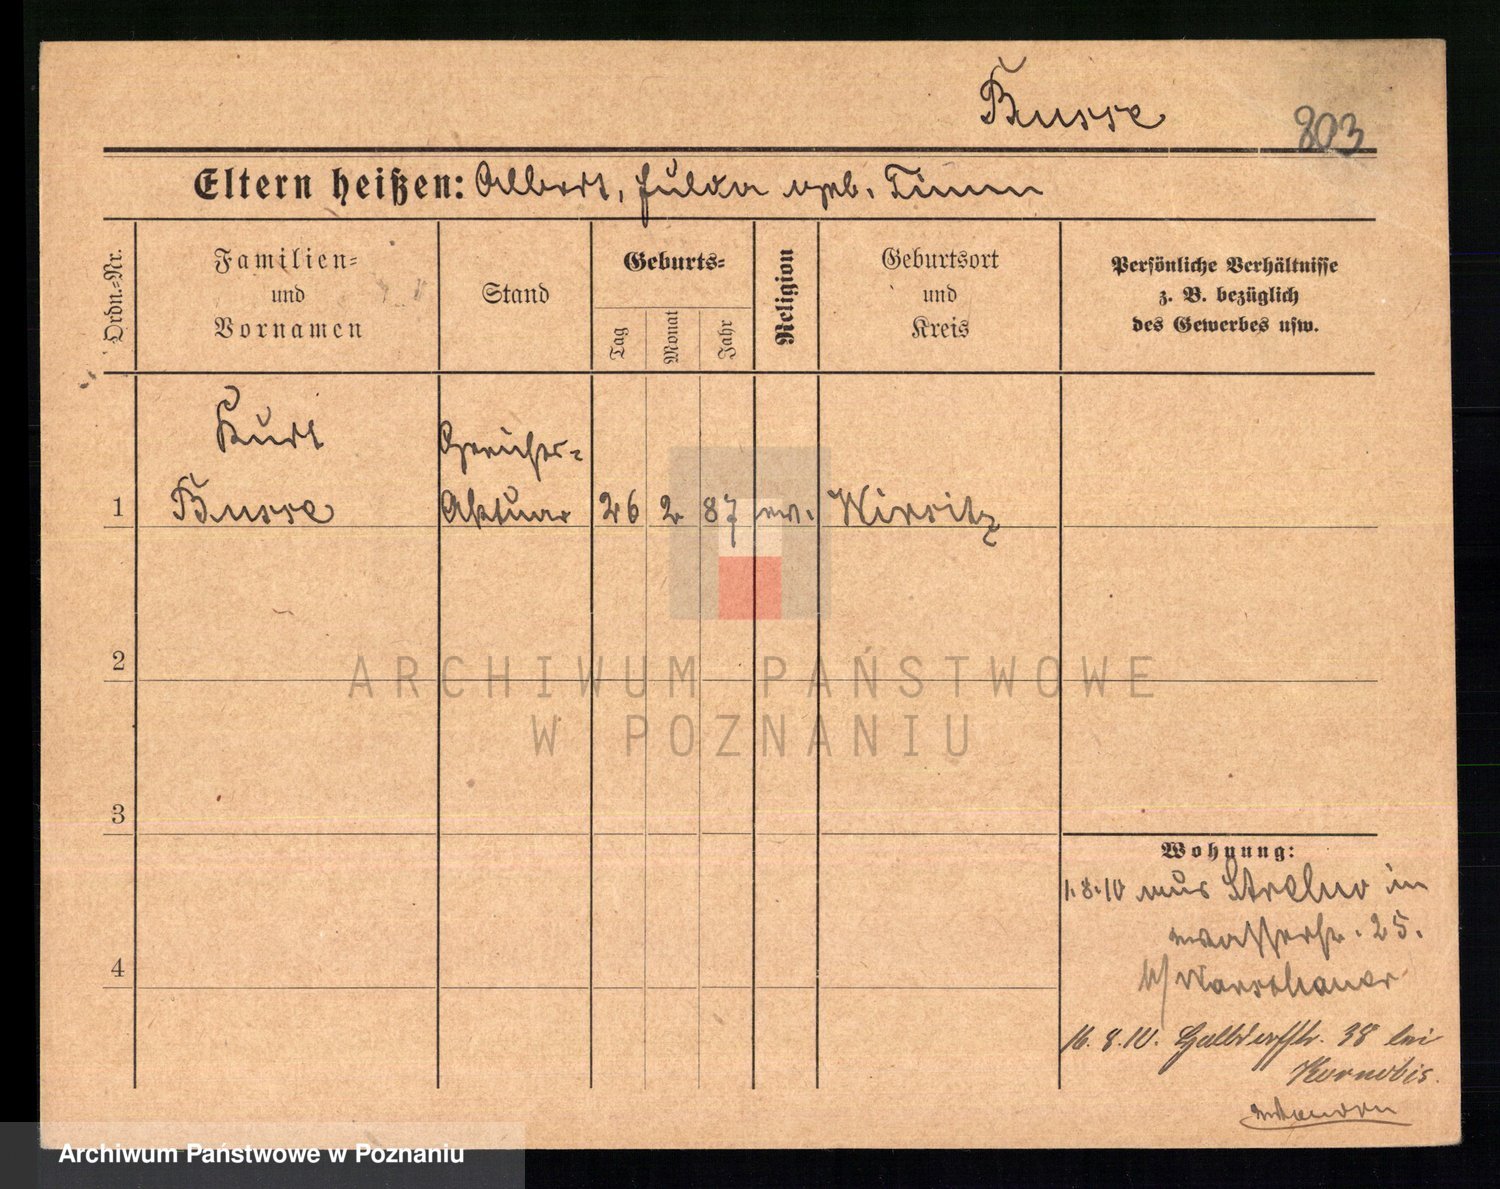 Busse
803
Eltern heißen: Albert, Hulda geb. Timm
Ordn.-Nr.
Familien-
und
Vornamen
Stand
Geburts-
Tag
Monat
Jahr
Religion
Geburtsort
und
Kreis
Persönliche Verhältnisse
z. B. bezüglich
des Gewerbes usw.
Kurt
Gerichts-
1 Busse Aktuar 26 2 87 ev. Wirsitz
2
ARCHIWUM PAŃSTWOWE
W POZNANIU
3
Wohnung:
1.8.10 aus Strelno in
Wasserstr. 25.
b/ Warschauer
4
16.8.10. Halbdorfstr. 38 bei
Kornobis.
Archiwum Państwowe w Poznaniu